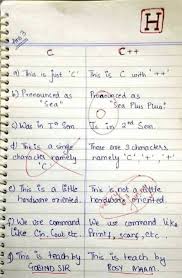 H
Ans 3
C
C++
a) This is just 'C'
This is C with '++'
b) Pronounced as "Sea"
Pronounced as "Sea Plus Plus"
c) Was in 1st Sem
Is in 2nd Sem
d) This is a single character namely 'C'
There are 3 characters namely 'C' '+' '+'
e) This is a little hardware oriented.
This is not a little hardware oriented
f) We use command like Cin, Cout etc.
We use command like Printf, scanf, etc
g) This is teach by GOBIND SIR
This is teach by ROSY MAAM.